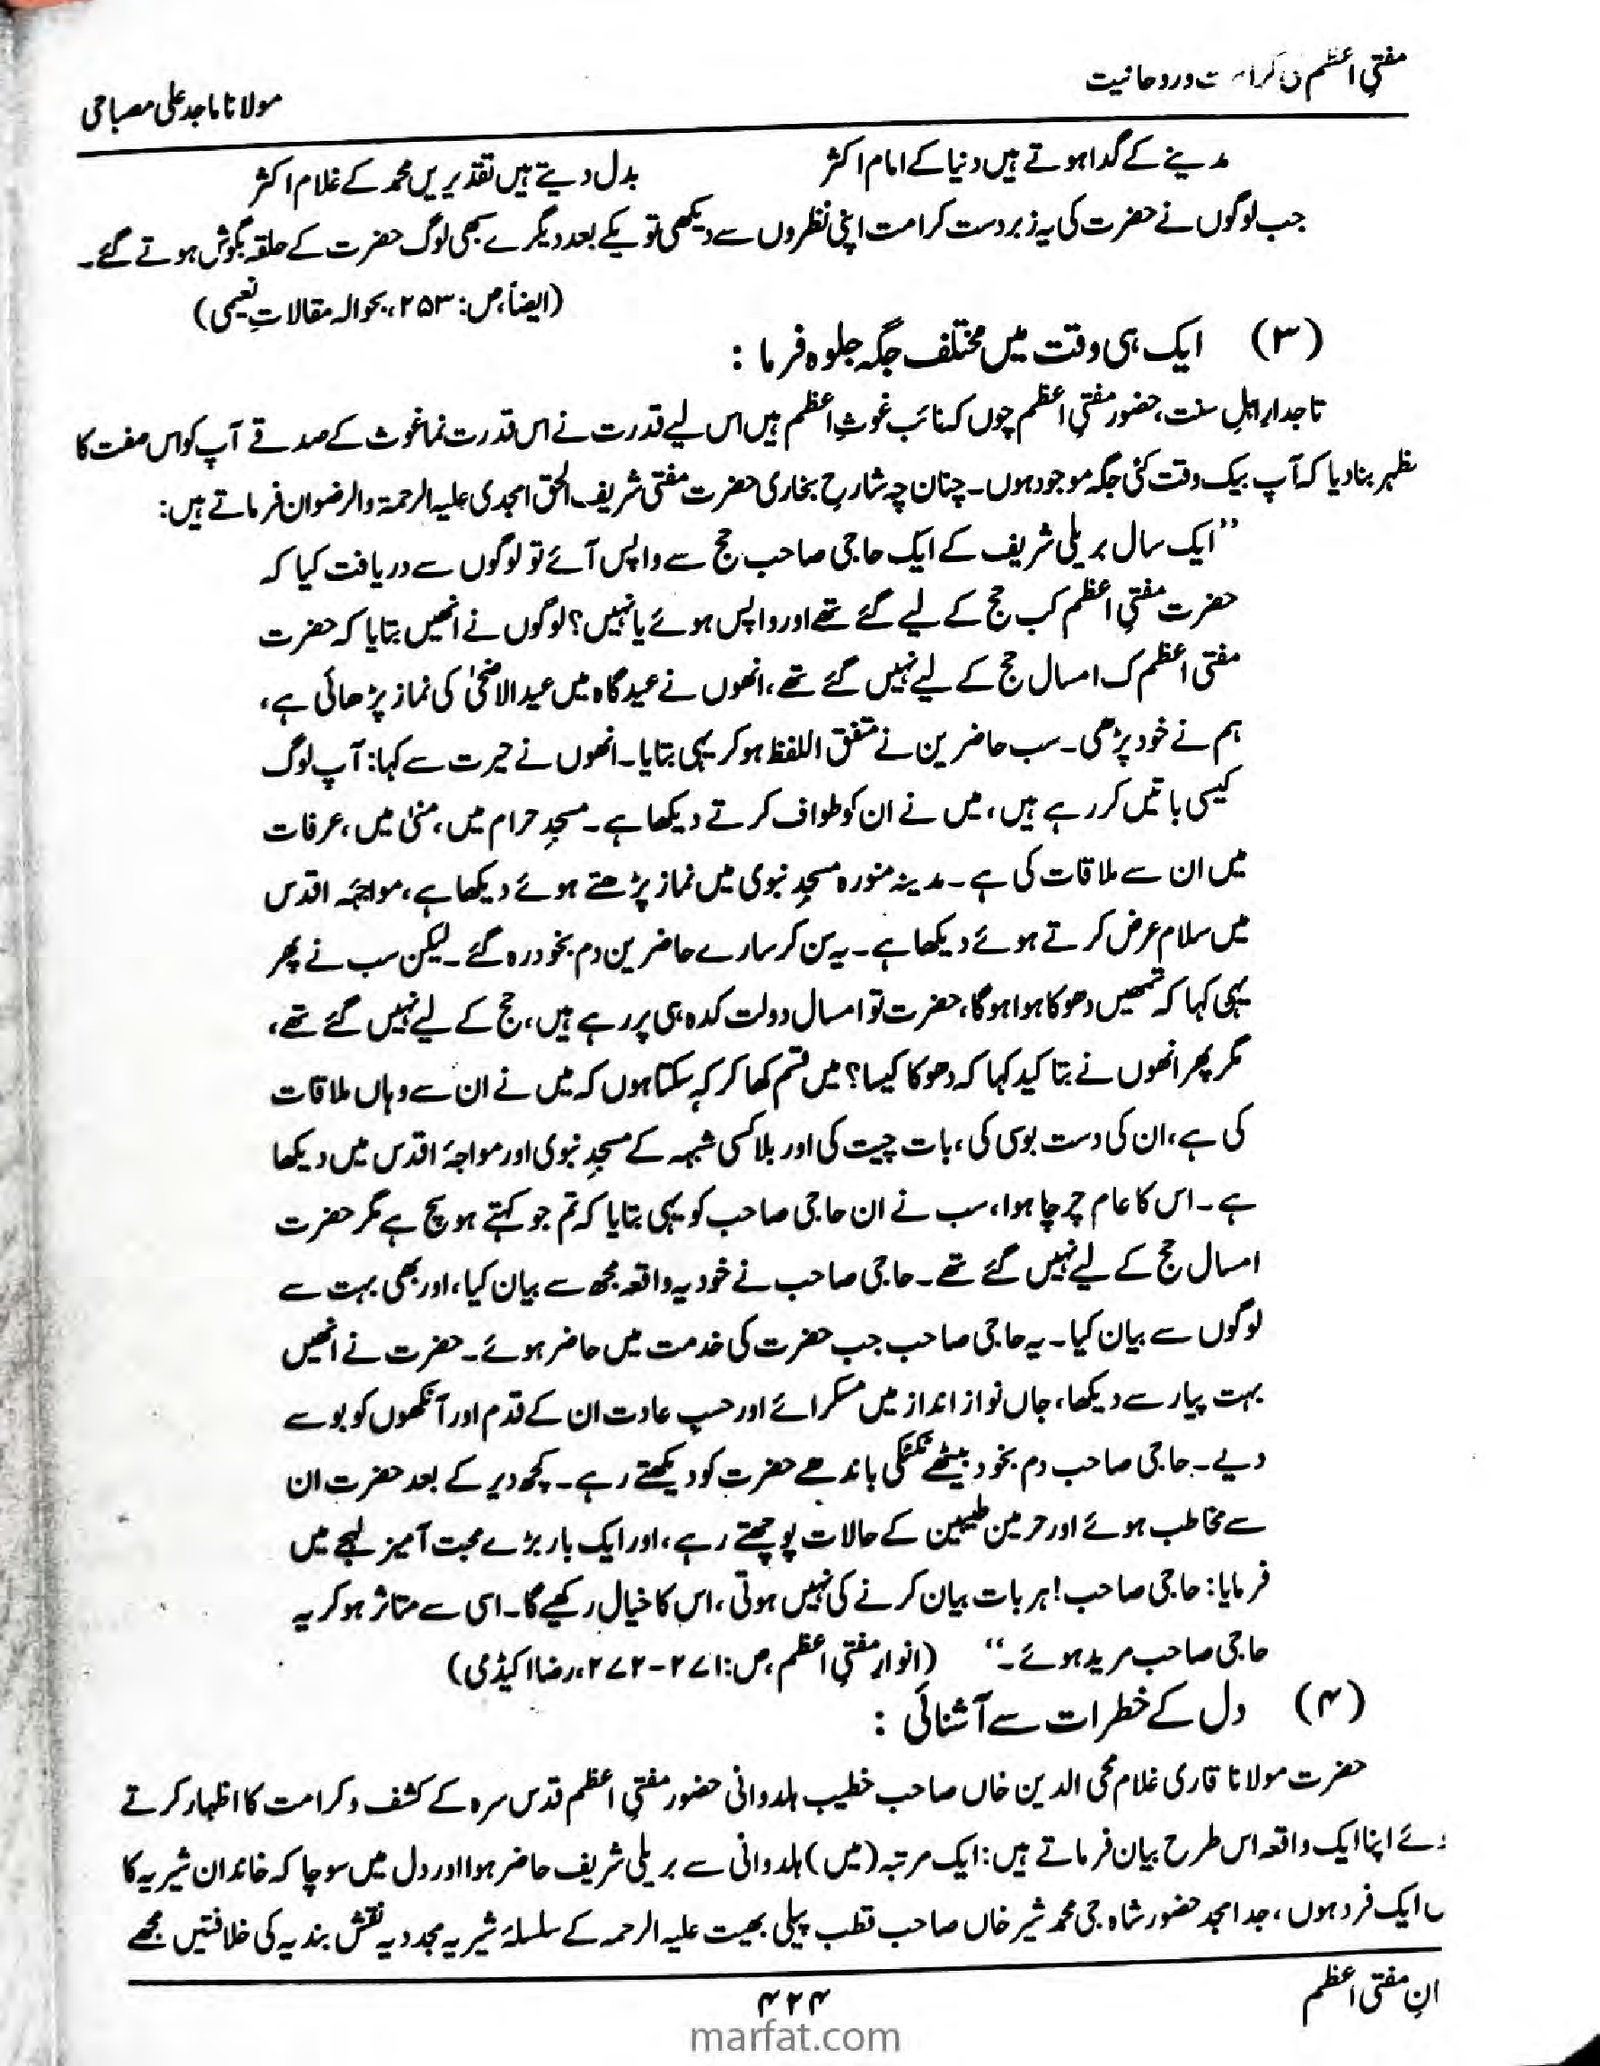 مفتیِ اعظم کی کرامت و روحانیت
مولانا ماجد علی مصباحی
مدینے کے گدا ہوتے ہیں دنیا کے امام اکثر بدل دیتے ہیں تقدیریں محمد کے غلام اکثر
جب لوگوں نے حضرت کی یہ زبردست کرامت اپنی نظروں سے دیکھی تو یکے بعد دیگرے سبھی لوگ حضرت کے حلقہ بگوش ہوتے گئے۔
(ایضاً، ص: ۲۵۳، بحوالہ مقالاتِ نعیمی)
(۳) ایک ہی وقت میں مختلف جگہ جلوہ فرما :
تاجدارِ اہلِ سنت، حضور مفتیِ اعظم چوں کہ نائب غوثِ اعظم ہیں اس لیے قدرت نے اس قدرت نما غوث کے صدقے آپ کو اس صفت کا
مظہر بنا دیا کہ آپ بیک وقت کئی جگہ موجود ہوں۔ چنان چہ شارحِ بخاری حضرت مفتی شریف الحق امجدی علیہ الرحمۃ والرضوان فرماتے ہیں:
”ایک سال بریلی شریف کے ایک حاجی صاحب حج سے واپس آئے تو لوگوں سے دریافت کیا کہ
حضرت مفتیِ اعظم کب حج کے لیے گئے تھے اور واپس ہوئے یا نہیں؟ لوگوں نے انھیں بتایا کہ حضرت
مفتی اعظم ک امسال حج کے لیے نہیں گئے تھے، انھوں نے عید گاہ میں عید الاضحیٰ کی نماز پڑھائی ہے،
ہم نے خود پڑھی۔ سب حاضرین نے متفق اللفظ ہو کر یہی بتایا۔ انھوں نے حیرت سے کہا: آپ لوگ
کیسی باتیں کر رہے ہیں، میں نے ان کو طواف کرتے دیکھا ہے۔ مسجدِ حرام میں، منیٰ میں، عرفات
میں ان سے ملاقات کی ہے۔ مدینہ منورہ مسجدِ نبوی میں نماز پڑھتے ہوئے دیکھا ہے، مواجہہ اقدس
میں سلام عرض کرتے ہوئے دیکھا ہے۔ یہ سن کر سارے حاضرین دم بخود رہ گئے۔ لیکن سب نے پھر
یہی کہا کہ تمھیں دھوکا ہوا ہوگا، حضرت تو امسال دولت کدہ ہی پر رہے ہیں، حج کے لیے نہیں گئے تھے،
مگر پھر انھوں نے بتاکید کہا کہ دھوکا کیسا؟ میں قسم کھا کر کہہ سکتا ہوں کہ میں نے ان سے وہاں ملاقات
کی ہے، ان کی دست بوسی کی، بات چیت کی اور بلا کسی شبہہ کے مسجدِ نبوی اور مواجۂ اقدس میں دیکھا
ہے۔ اس کا عام چرچا ہوا، سب نے ان حاجی صاحب کو یہی بتایا کہ تم جو کہتے ہو سچ ہے مگر حضرت
امسال حج کے لیے نہیں گئے تھے۔ حاجی صاحب نے خود یہ واقعہ مجھ سے بیان کیا، اور بھی بہت سے
لوگوں سے بیان کیا۔ یہ حاجی صاحب جب حضرت کی خدمت میں حاضر ہوئے۔ حضرت نے انھیں
بہت پیار سے دیکھا، جاں نواز انداز میں مسکرائے اور حسبِ عادت ان کے قدم اور آنکھوں کو بوسے
دیے۔ حاجی صاحب دم بخود بیٹھے ٹکٹکی باندھے حضرت کو دیکھتے رہے۔ کچھ دیر کے بعد حضرت ان
سے مخاطب ہوئے اور حرمین طیبین کے حالات پوچھتے رہے، اور ایک بار بڑے محبت آمیز لہجے میں
فرمایا: حاجی صاحب! ہر بات بیان کرنے کی نہیں ہوتی، اس کا خیال رکھیے گا۔ اسی سے متاثر ہو کر یہ
حاجی صاحب مرید ہوئے۔“ (انوارِ مفتیِ اعظم، ص: ۲۷۱-۲۷۲، رضا اکیڈمی)
(۴) دل کے خطرات سے آشنائی :
حضرت مولانا قاری غلام محی الدین خاں صاحب خطیب ہلدوانی حضور مفتیِ اعظم قدس سرہ کے کشف و کرامت کا اظہار کرتے
وئے اپنا ایک واقعہ اس طرح بیان فرماتے ہیں: ایک مرتبہ (میں) ہلدوانی سے بریلی شریف حاضر ہوا اور دل میں سوچا کہ خاندان شیریہ کا
ں ایک فرد ہوں، جد امجد حضور شاہ جی محمد شیر خاں صاحب قطب پیلی بھیت علیہ الرحمہ کے سلسلۂ شیریہ مجددیہ نقش بندیہ کی خلافتیں مجھے
انِ مفتی اعظم
۴۲۴
marfat.com